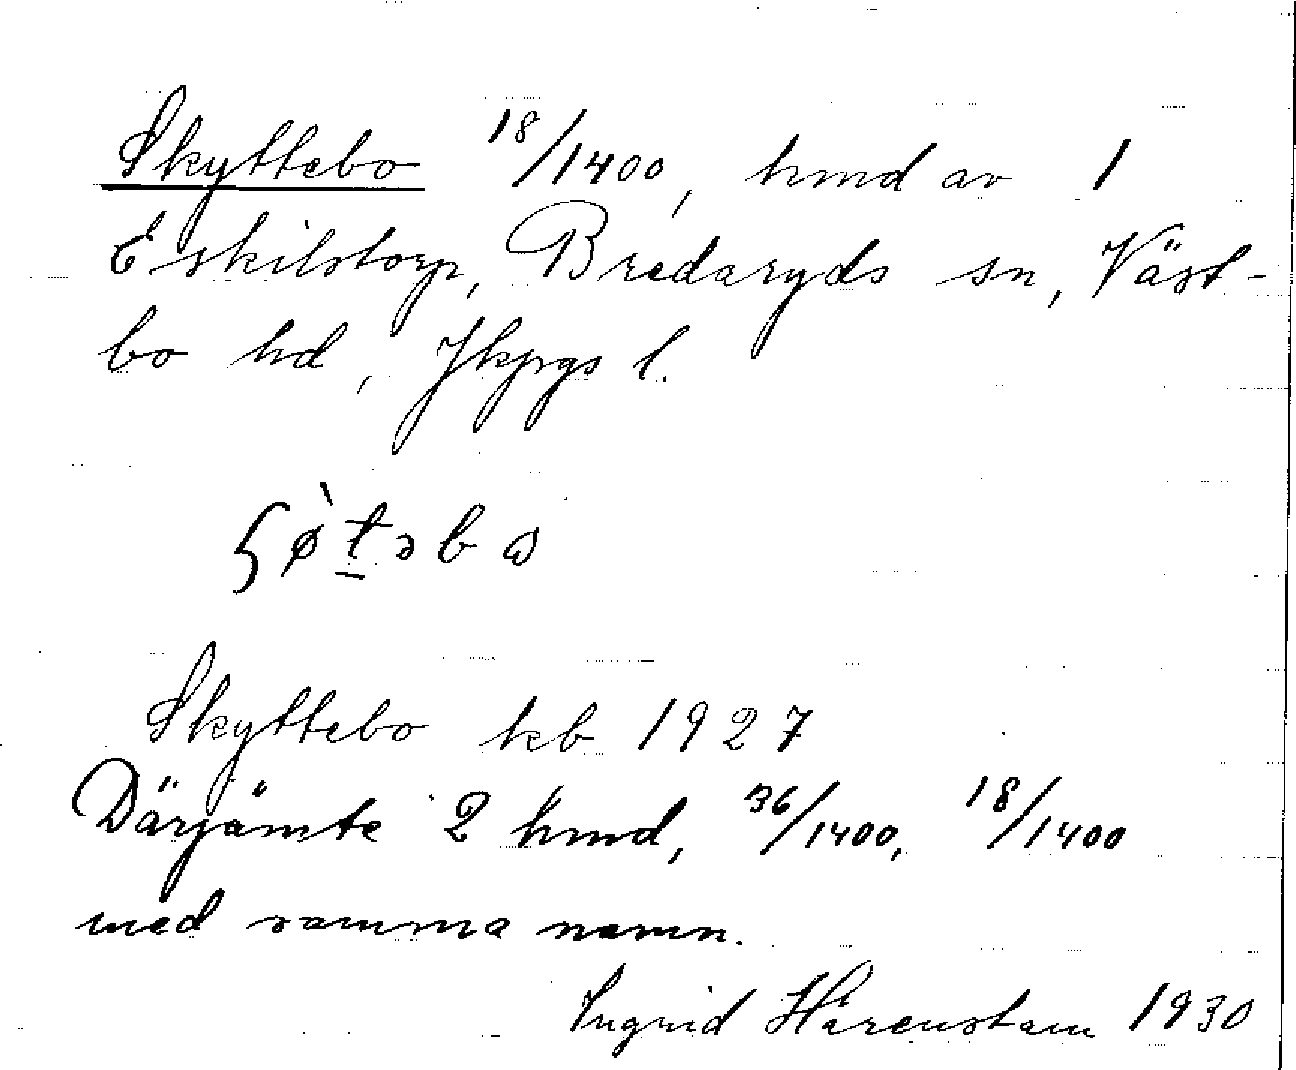 Skyttebo 18/1400, hmd av 1
Eskilstorp, Bredaryds sn, Väst-
bo hd, Jkpgs l.
Skyttebo kb 1927
Därjämte 2 hmd, 36/1400, 18/1400
med samma namn.
Ingrid Hårenstam 1930